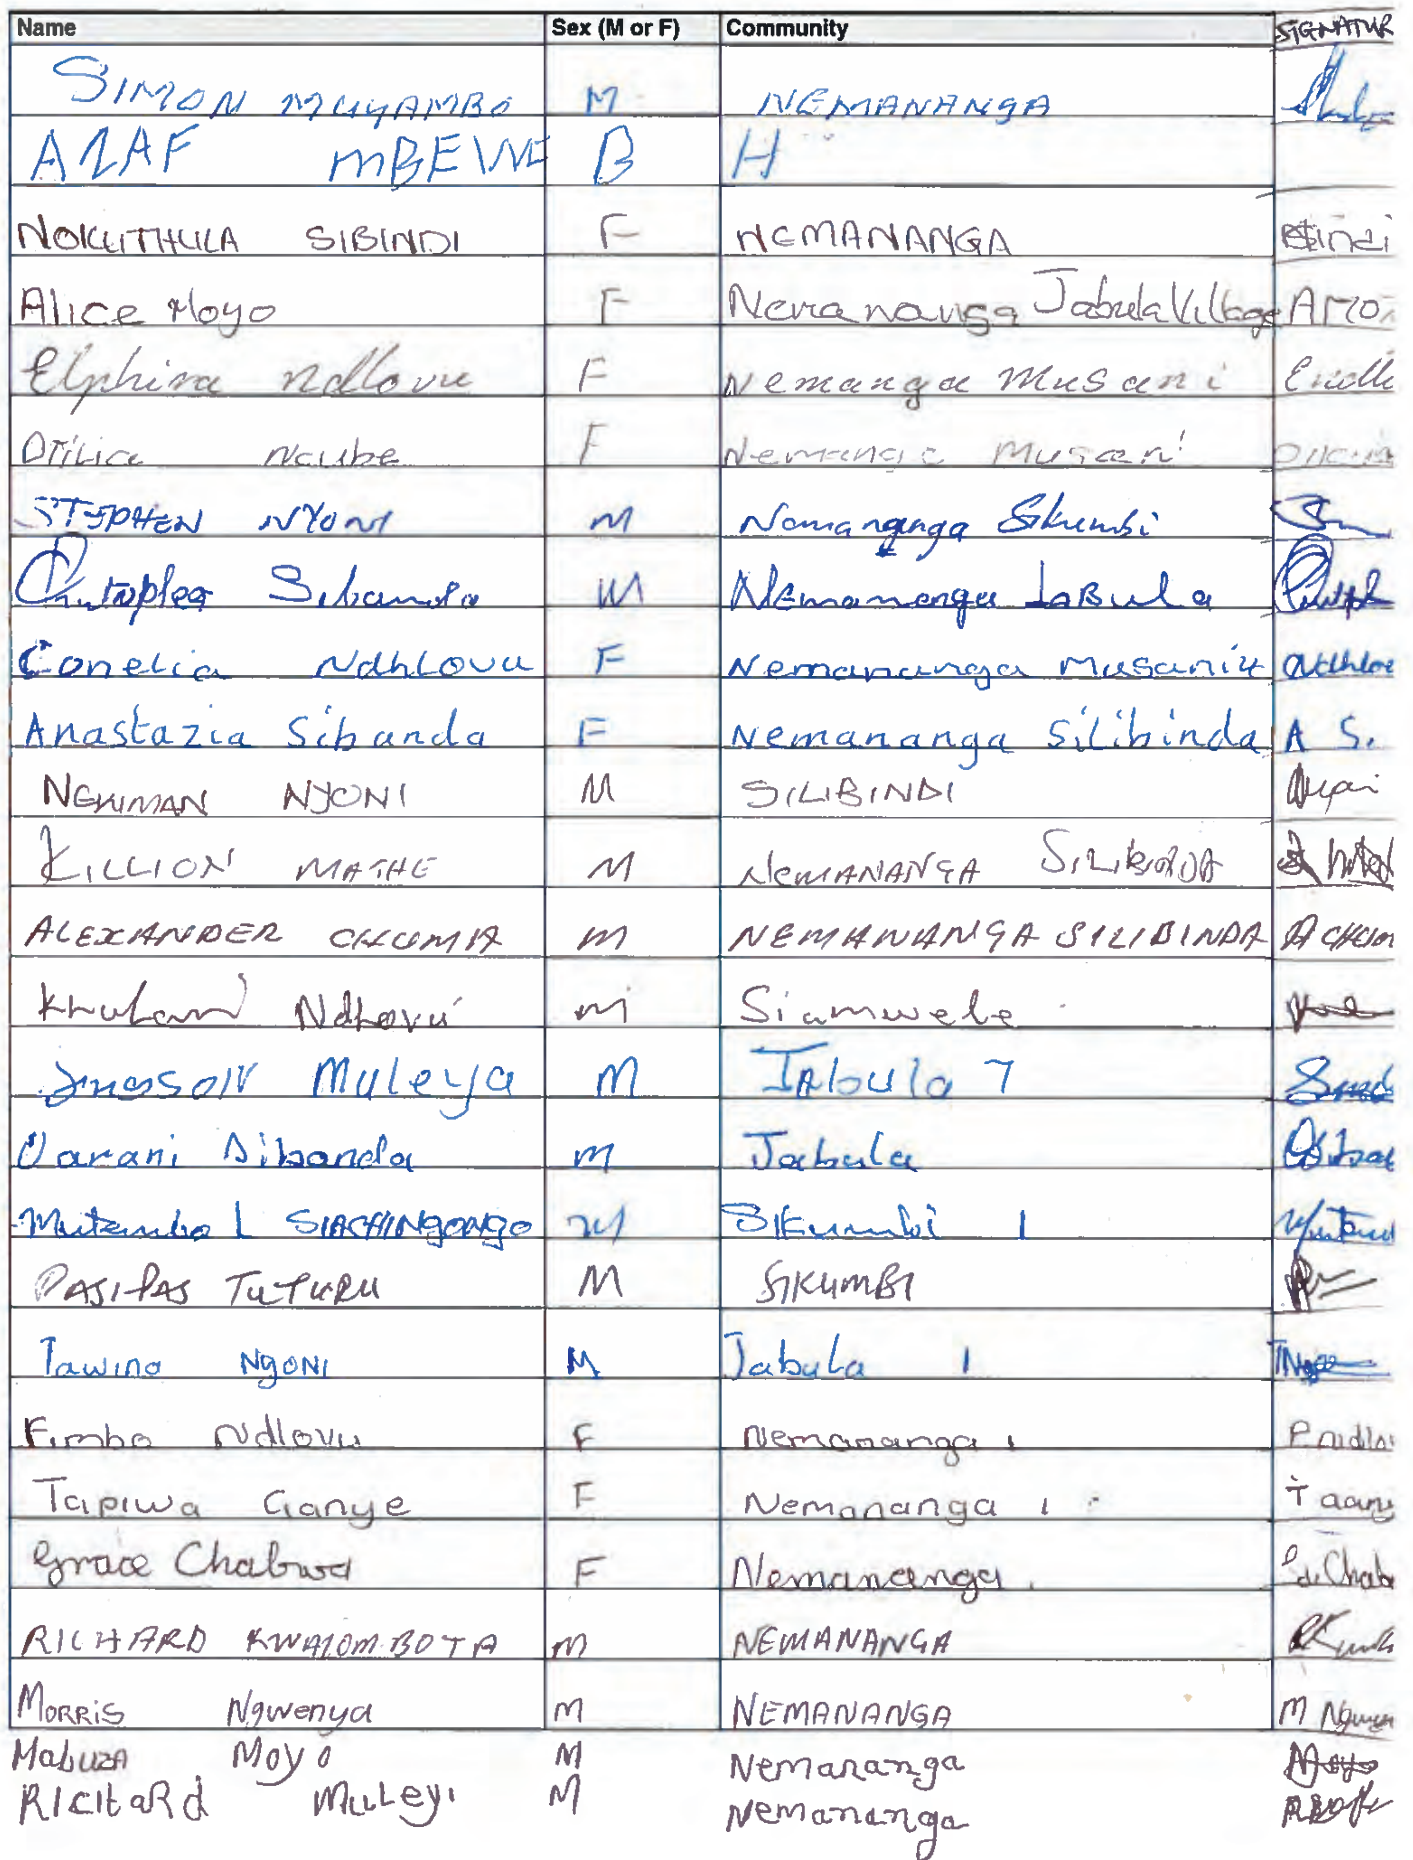 Name Sex (M or F) Community SIGNATUR
SIMON MUYAMBO M NEMANANGA
MBEWE B H
NOKUTHULA SIBINDI F NEMANANGA
Alice Moyo F Nemananga Jabula Village AMO
Elphina Ndlovu F Nemanga Musani
Otilia Ncube F Nemanga Musani
STEPHEN NYONI M Sikumbi
Sibanda M Nemananga JaBula
Conelia Ndhlovu F Nemananga Musani
Anastazia Sibanda F Nemananga Silibinda A S.
NYONI M SILIBINDI
KILLION MATHE M NEMANANGA
ALEXANDER CHUMA M NEMANANGA SILIBINDA ACHUM
Ndhlovu M Siamwele
Muleya M JAbula 7
Sibanda M Jabula
Mutembo L SIACHINGONGO M SIKumbi 1
PASIPAS TUTURU M SIKUMBI
Tawina NgONI M Jabula 1
Fimba Ndlovu F Nemananga 1
Tapiwa Ganye F Nemananga 1
Grace Chabwa F Nemananga
RICHARD M NEMANANGA
MORRIS Ngwenya M NEMANANGA M
MabuzA Moyo M Nemananga Moyo
RICHaRd MuLeyi M Nemananga